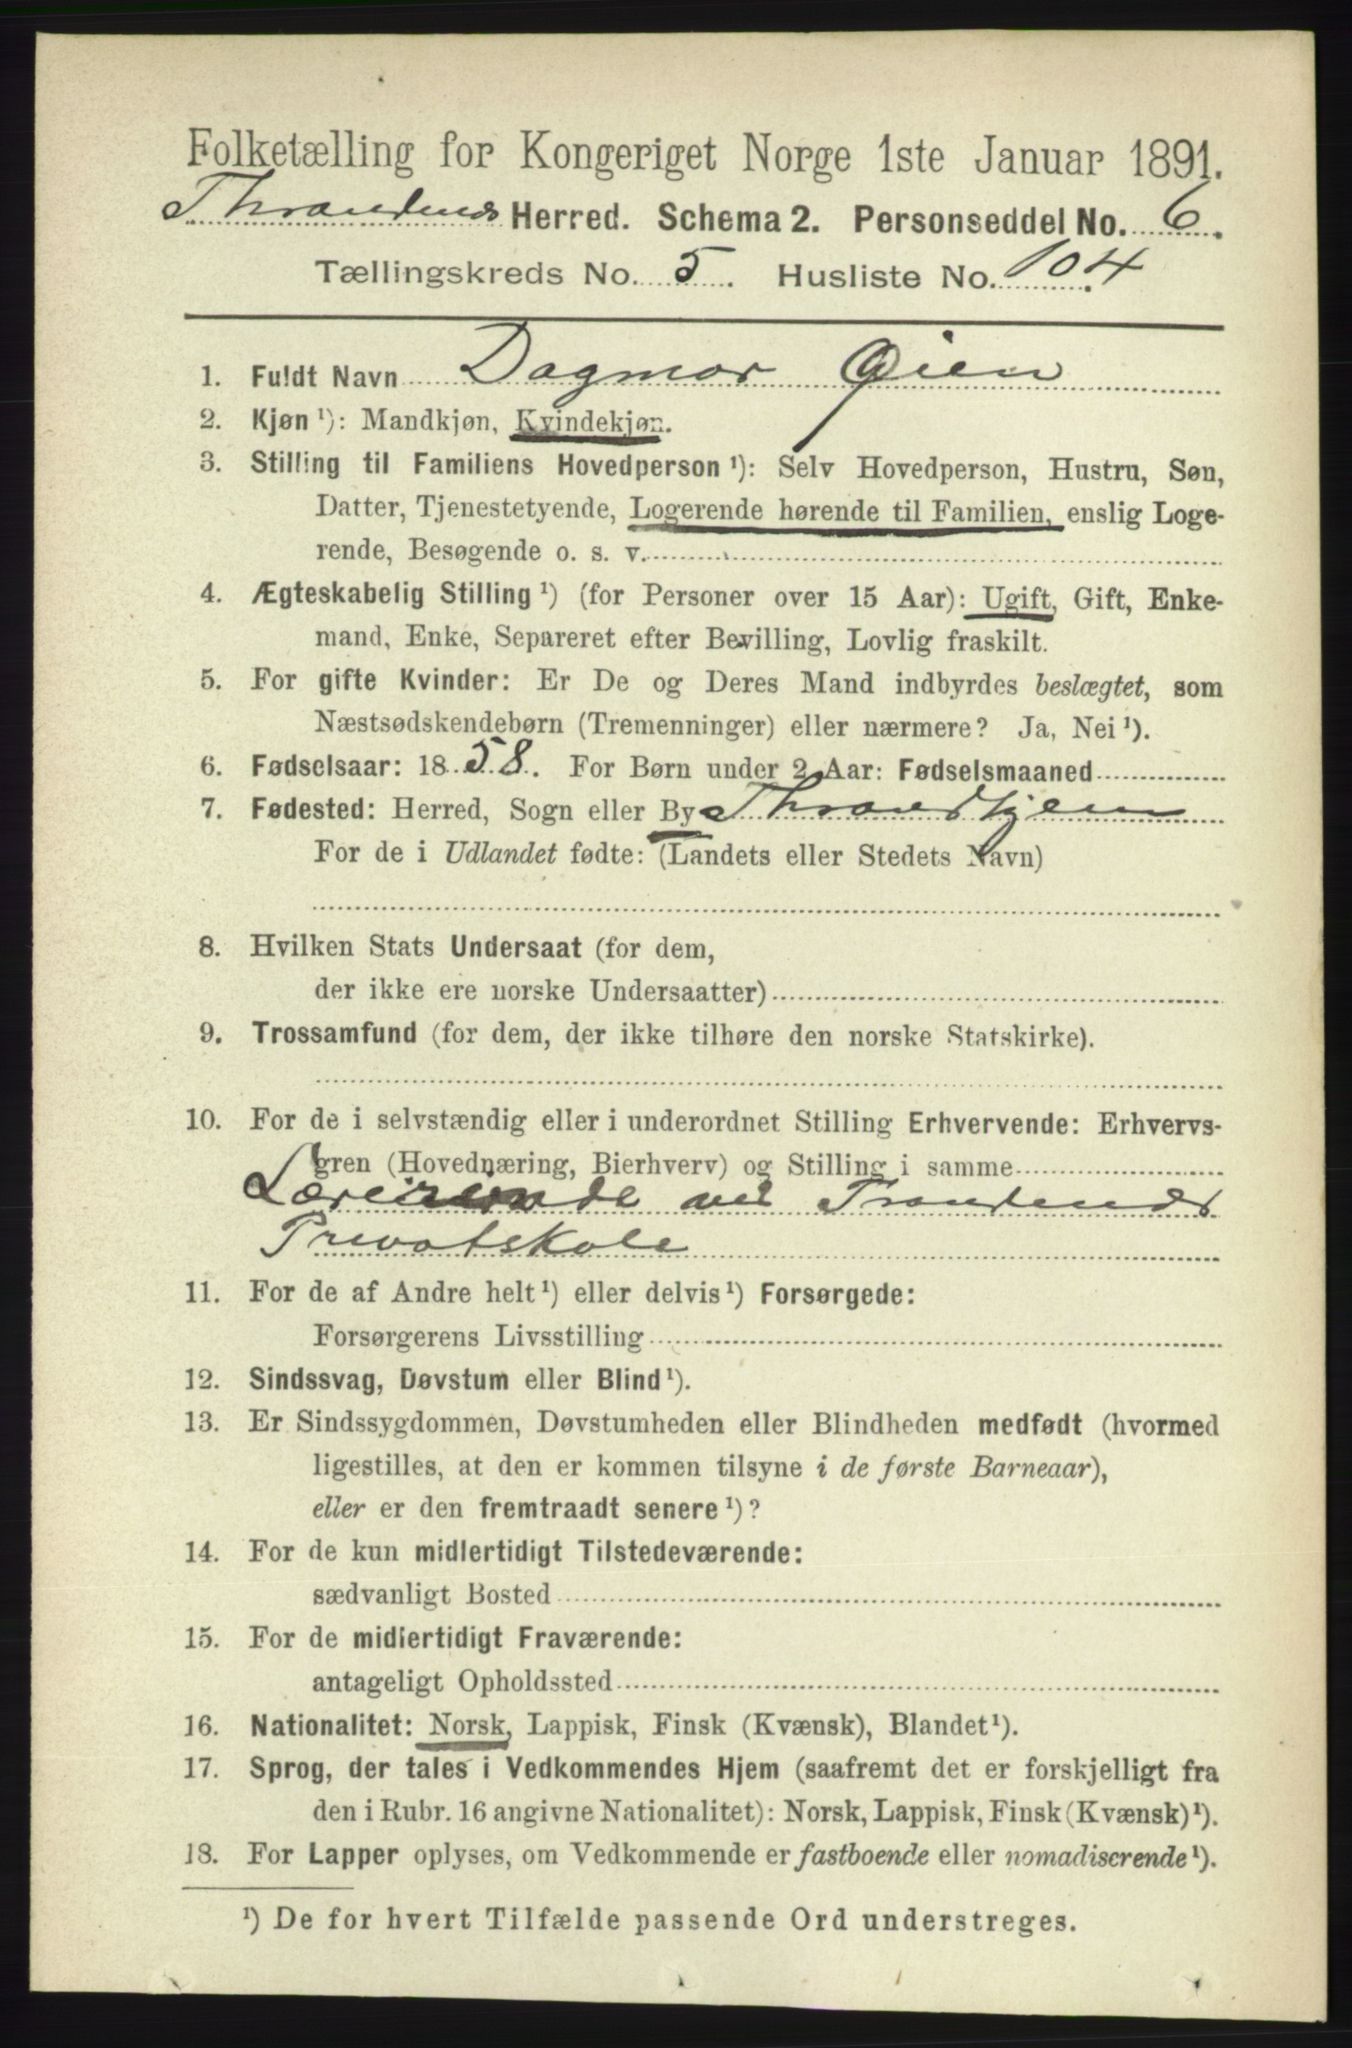 Folketælling for Kongeriget Norge 1ste Januar 1891.
Throndenæs Herred. Schema 2. Personseddel No. 6.
Tællingskreds No. 5. Husliste No. 104.
1. Fuldt Navn Dagmar Øien
2. Kjøn ¹): Mandkjøn, Kvindekjøn.
3. Stilling til Familiens Hovedperson ¹): Selv Hovedperson, Hustru, Søn,
Datter, Tjenestetyende, Logerende hørende til Familien, enslig Loge-
rende, Besøgende o. s. v.
4. Ægteskabelig Stilling ¹) (for Personer over 15 Aar): Ugift, Gift, Enke-
mand, Enke, Separeret efter Bevilling, Lovlig fraskilt.
5. For gifte Kvinder: Er De og Deres Mand indbyrdes beslægtet, som
Næstsødskendebørn (Tremenninger) eller nærmere? Ja, Nei ¹).
6. Fødselsaar: 1858. For Børn under 2 Aar: Fødselsmaaned
7. Fødested: Herred, Sogn eller By Throndhjem
For de i Udlandet fødte: (Landets eller Stedets Navn)
8. Hvilken Stats Undersaat (for dem,
der ikke ere norske Undersaatter)
9. Trossamfund (for dem, der ikke tilhøre den norske Statskirke).
10. For de i selvstændig eller i underordnet Stilling Erhvervende: Erhvervs-
gren (Hovednæring, Bierhverv) og Stilling i samme
Lærerinde ved Trondenæs
Privatskole
11. For de af Andre helt ¹) eller delvis ¹) Forsørgede:
Forsørgerens Livsstilling
12. Sindssvag, Døvstum eller Blind ¹).
13. Er Sindssygdommen, Døvstumheden eller Blindheden medfødt (hvormed
ligestilles, at den er kommen tilsyne i de første Barneaar),
eller er den fremtraadt senere ¹)?
14. For de kun midlertidigt Tilstedeværende:
sædvanligt Bosted
15. For de midlertidigt Fraværende:
antageligt Opholdssted
16. Nationalitet: Norsk, Lappisk, Finsk (Kvænsk), Blandet ¹).
17. Sprog, der tales i Vedkommendes Hjem (saafremt det er forskjelligt fra
den i Rubr. 16 angivne Nationalitet): Norsk, Lappisk, Finsk (Kvænsk) ¹).
18. For Lapper oplyses, om Vedkommende er fastboende eller nomadiserende ¹).
¹) De for hvert Tilfælde passende Ord understreges.